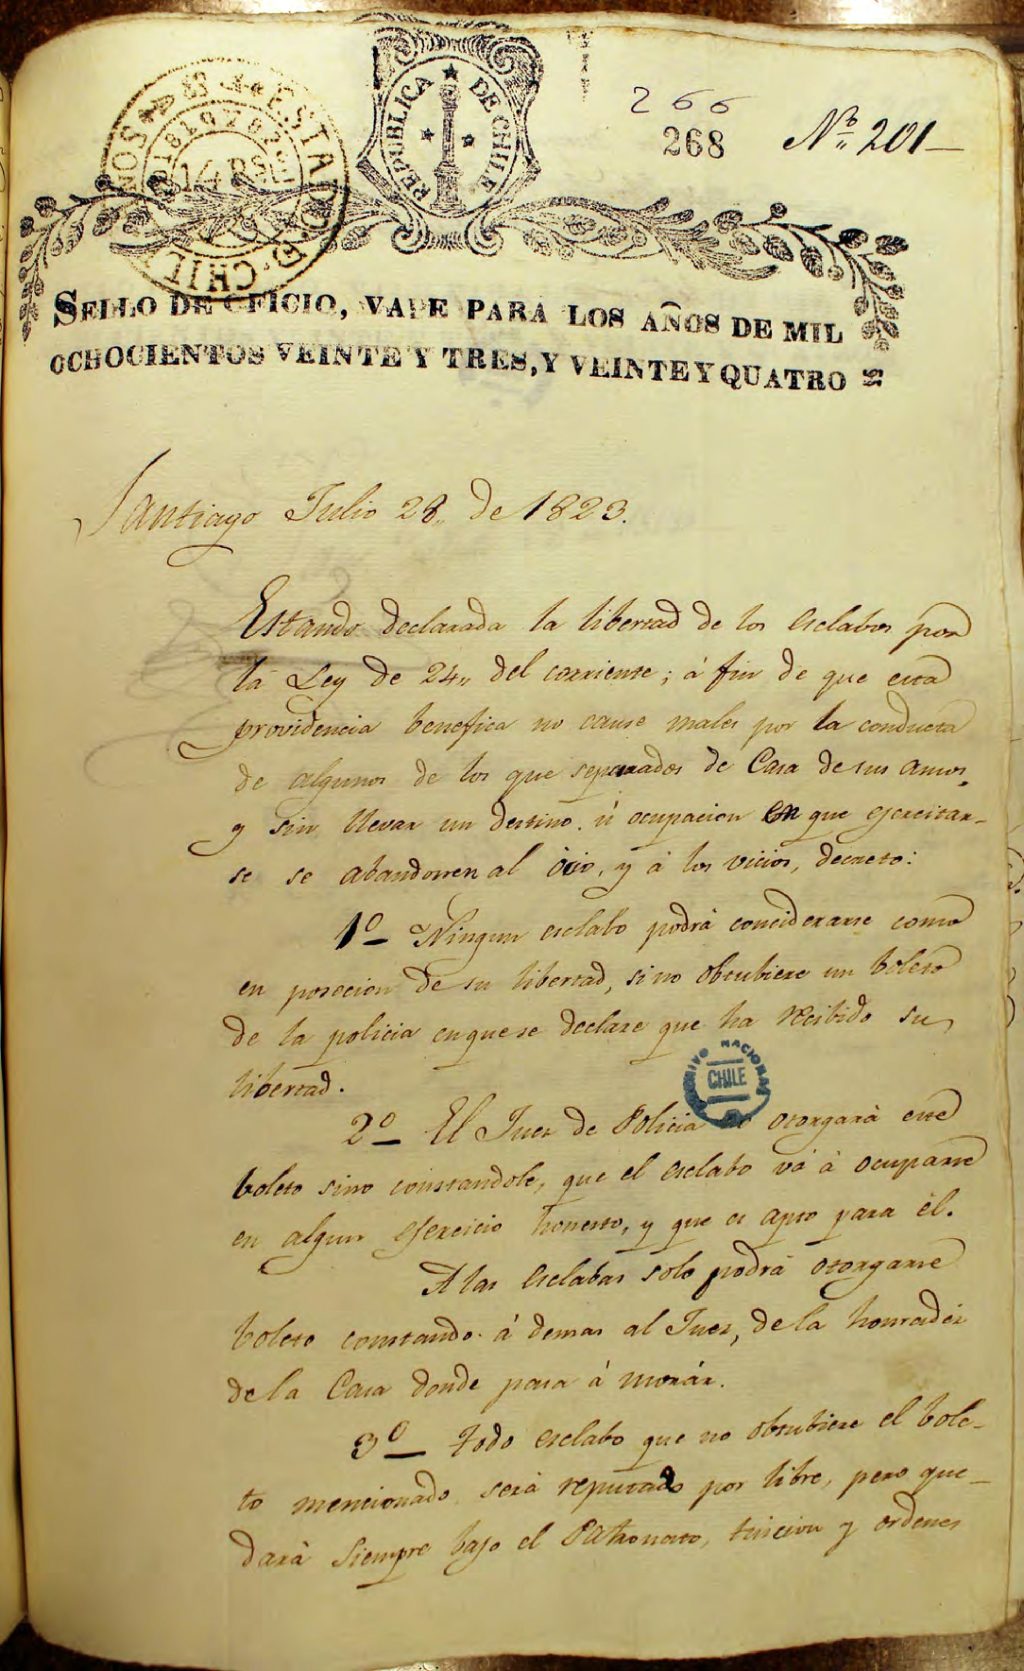 REPUBLICA DE CHILE
266
268
Nº 201
ESTADO D. CHILE
SELLO DE OFICIO, VALE PARA LOS AÑOS DE MIL
OCHOCIENTOS VEINTE Y TRES, Y VEINTE Y QUATRO
Santiago Julio 28,, de 1823.
Estando declarada la libertad de los esclabos por
la Ley de 24,, del corriente; á fin de que esta
providencia benefica no cause males por la conducta
de algunos de los que separados de Casa de sus amos,
y sin llevar un destino ú ocupacion en que ejercitar-
se se abandonen al ócio, y á los vicios, decreto:
1º Ningun esclabo podrá conciderarse como
en posecion de su libertad, si no obtubiere un boleto
de la policia en que se declare que ha recibido su
libertad.
ARCHIVO NACIONAL
CHILE
2º El Juez de Policia no otorgará este
boleto sino constandole, que el esclabo vá á ocuparse
en algun ejercicio honesto, y que es apto para él.
A las esclabas solo podrá otorgarse
boleto constando á demas al Juez, de la honradéz
de la Casa donde pasa á morár.
3º Todo esclabo que no obtubiere el bole-
to mencionado será reputado por libre, pero que-
dará siempre bajo el Patronato, tuicion y ordenes